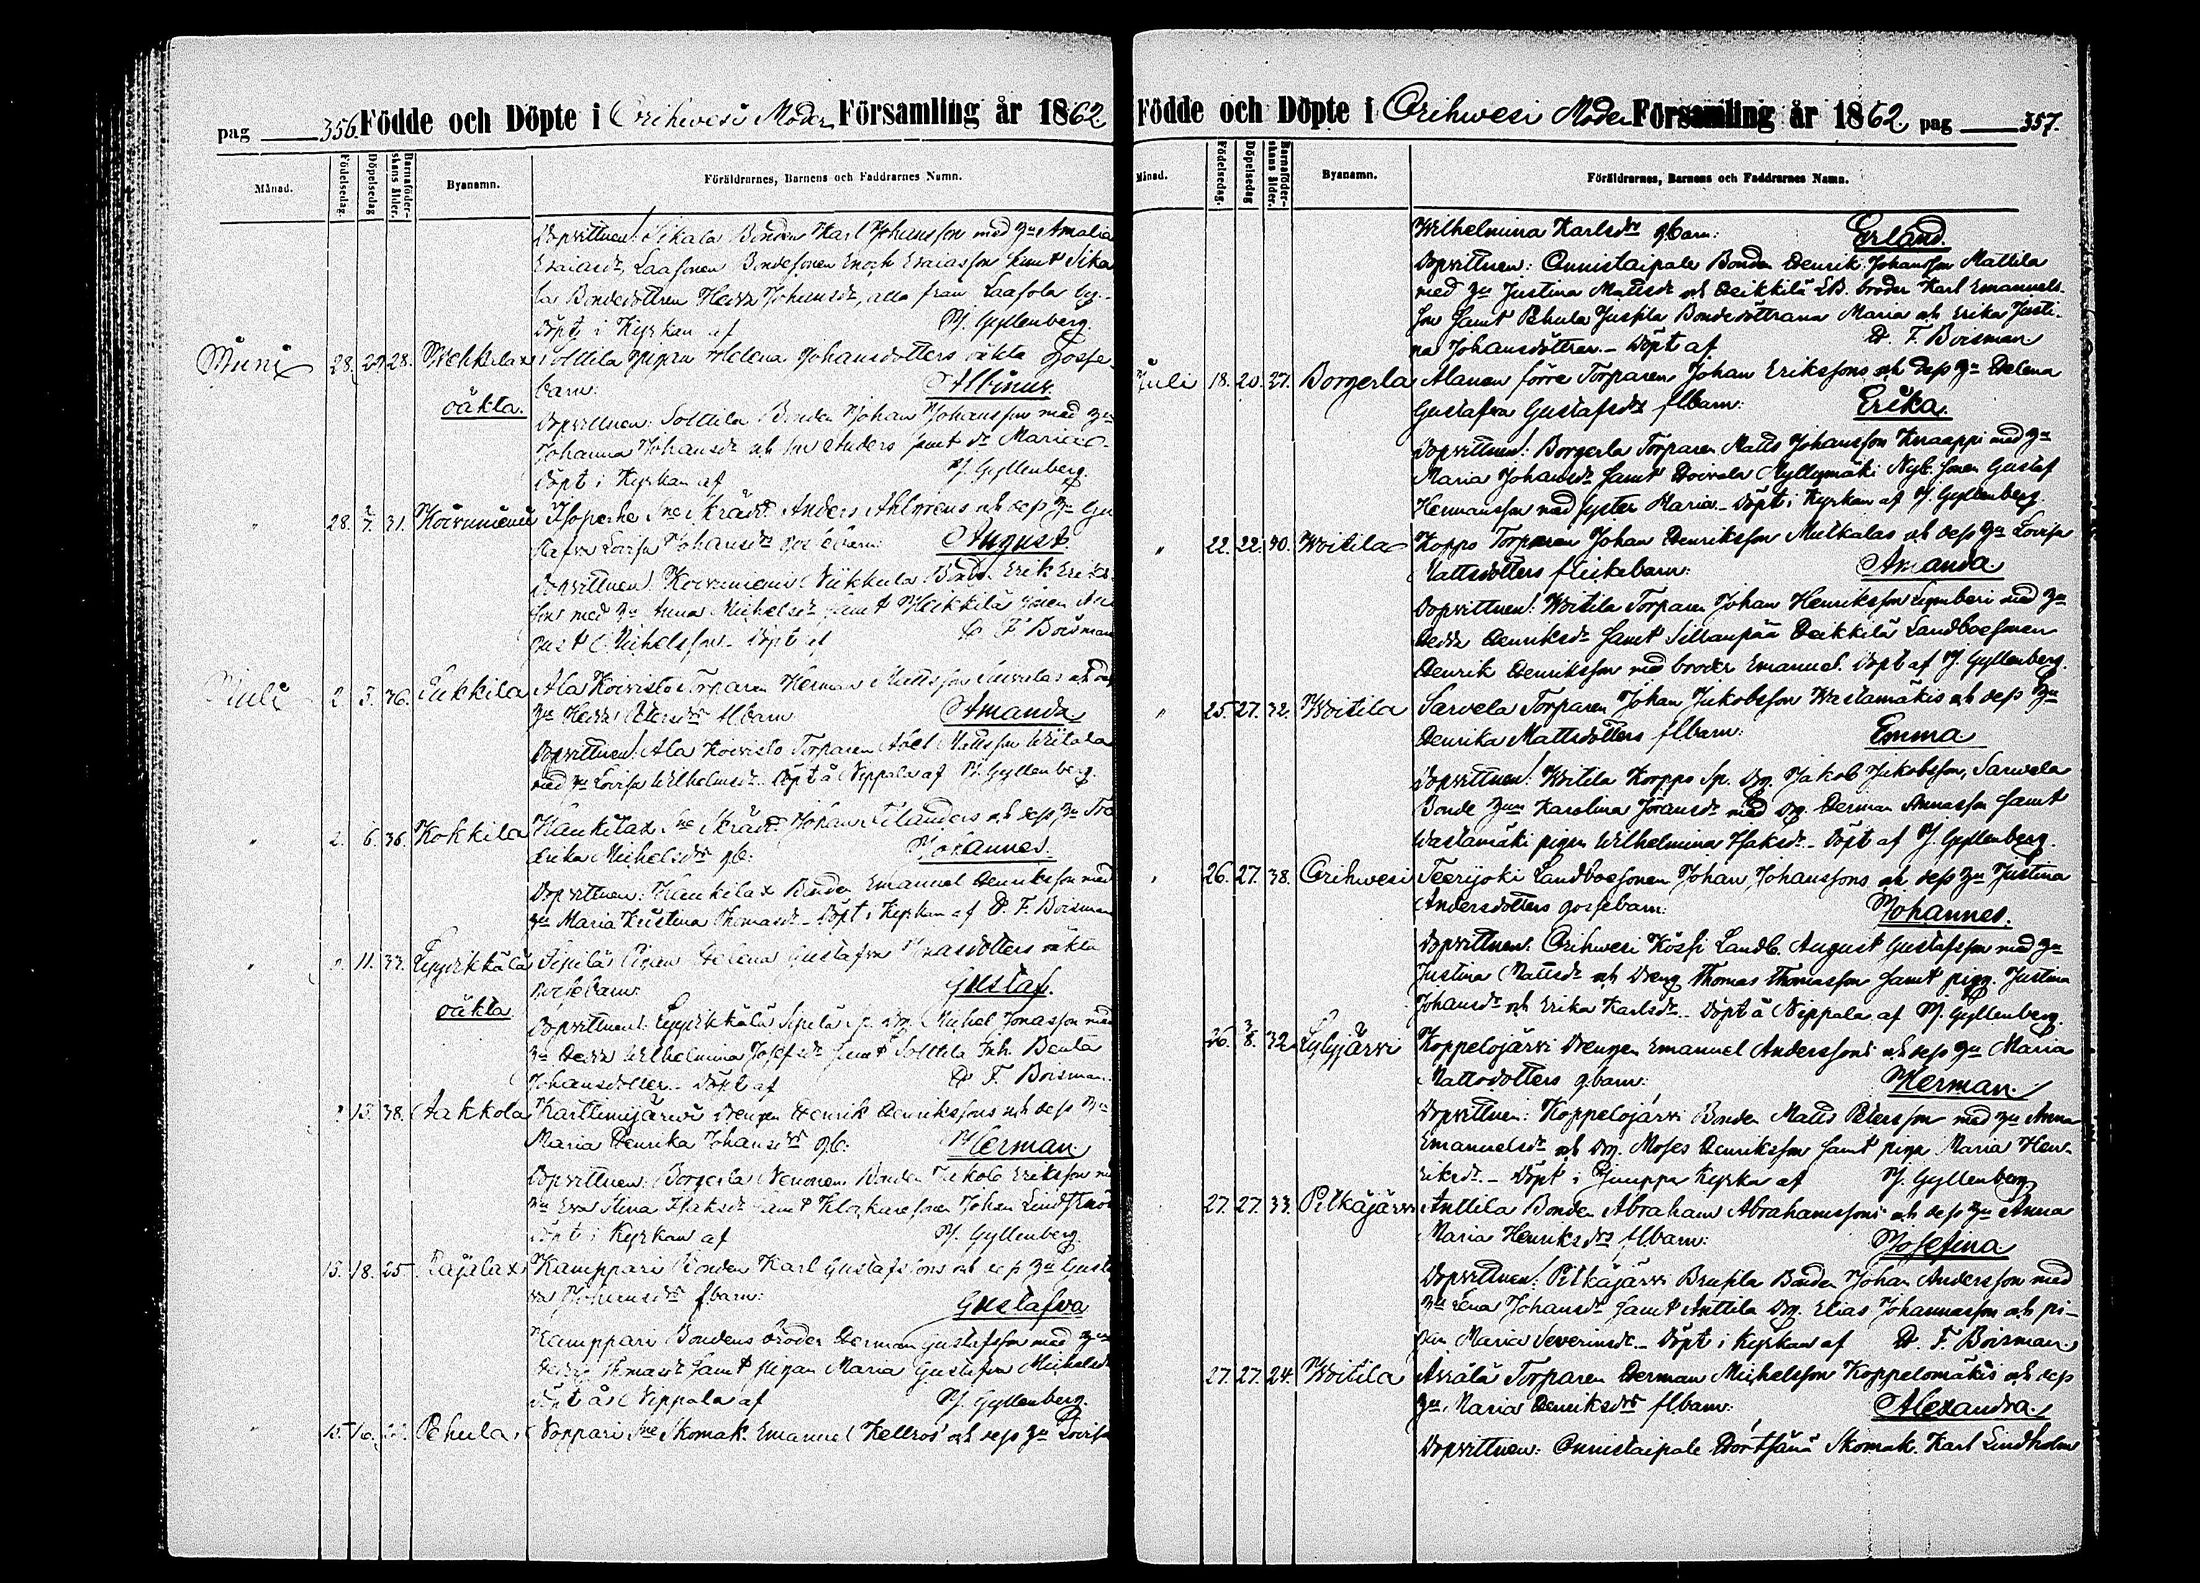 pag 356. Födde och Döpte i Orihwesi Moder Församling år 1862
Månad. Födelsedag. Döpelsedag Barnaföderskans ålder. Byanamn. Föräldrarnes, Barnens och Faddrarnes Namn.
Dopvittnen: Sikala Bonden Karl Johansson med hu Amalia
Esaiasdr, Laasonen Bondesonen Enoch Esaiasson samt Sika
la Bondedottren Hedda Johansdr, alla från Laasola by.
Döpt i Kyrkan af M. Gyllenberg.
Juni 28. 29. 28. Wehkalax Solttila pigan Helena Johansdotters oäkta gosse-
oäkta. barn: Albinus.
Dopvittnen: Solttila Bonden Johan Johansson med hu
Johanna Johansdr och son Anders samt dr Maria
Döpt i Kyrkan af M. Gyllenberg.
" 28. 2/7. 31. Koivuniemi Isoperhe Sne Skrädd. Anders Ahlgrens och dess hu Gu
stafva Lovisa Johansdrs gossebarn: August.
Dopvittnen: Koivuniemi Niikkula Bond. Erik Eriks
son med hu Anna Michelsdr samt Heikkilä sonen Au
gust Michelsson. Döpt af D. F. Boisman
Juli 2. 3. 36. Eukkila Ala Koivisto Torparen Herman Mattsson och dess
hu Hedda Petersdrs flbarn. Amanda
Dopvittnen: Ala Koivisto Torparen Abel Mattsson
med hu Lovisa Wilhelmsdr. Döpt å Nippala af M. Gyllenberg.
" 2. 6. 36. Kokkila Haukilax Sne Skrädd. Johan Felanders och dess hu
Erika Michelsdrs gb: Johannes.
Dopvittnen: Haukilax Bonden Emanuel Henriksson med
hu Maria Kristina Thomasdr. Döpt i Kyrkan af D. F. Boisman
" 11. 33. Eyväkkälä Sipilä Pigan Helena Gustafva Jonasdotters oäkta
oäkta gossebarn: Gustaf.
Dopvittnen: Eyväkkälä Sipilä Sp. Dg. Michel Jonasson med
hu Hedda Wilhelmina Josefsdr samt Solttila Inh. Beata
Johansdotter. Döpt af D. F. Boisman.
13. 38. Aakkola Karttimojärwi Drengen Henrik Henrikssons och dess hu
Maria Henrika Johansdrs gb: Herman.
Dopvittnen: Borgerla Nenonen Bonden Jakob Eriksson med
hu Eva Stina Isaksdr samt Klockaresonen Johan Lindström
Döpt i Kyrkan af M. Gyllenberg.
15. 18. 25 Rajalax Kamppari Bonden Karl Gustafssons och dess hu Gusta
va Johansdrs flbarn: Gustafva
Kamppari Bondens broder Herman Gustafsson med hu
Hedda Thomasdr samt pigan Maria Gustafva Michelsdr
Döpt å Nippala af M. Gyllenberg.
" 15. 16. Pehula Noppari Sne Skomak. Emanuel Hellros' och dess hu Lovisa
Födde och Döpte i Orihwesi Moder Församling år 1862. pag 357.
Månad. Födelsedag. Döpelsedag Barnaföderskans ålder. Byanamn. Föräldrarnes, Barnens och Faddrarnes Namn.
Wilhelmina Karlsdrs gbarn: Erland.
Dopvittnen: Onnistaipale Bonden Henrik Johansson Mattila
med hu Justina Mattsdr och Heikkilä LB. broder Karl Emanuels
son samt Pehula Jussila Bondedöttrarna Maria och Erika Justi-
na Johansdöttrar. Döpt af D. F. Boisman.
Juli 18. 20. 27. Borgerla Alanen förre Torparen Johan Erikssons och dess hu Helena
Gustafva Gustafsdrs flbarn: Erika.
Dopvittnen: Borgerla Torparen Matts Johansson Knaappi med hu
Maria Johansdr samt Hoivala Myllymäki Nyb. sonen Gustaf
Hermansson med syster Maria. Döpt i Kyrkan af M. Gyllenberg.
" 22. 22. 40. Woitila Koppo Torparen Johan Henriksson Mutkalas och dess hu Lovisa
Mattsdotters flickebarn: Amanda.
Dopvittnen: Woitila Torparen Johan Henriksson med hu
Hedda Henriksdr samt Sillanpää Heikkilä Landboesonen
Henrik Henriksson med broder Emanuel. Döpt af M. Gyllenberg.
" 25. 27. 32. Woitila Sarvela Torparen Johan Jakobsson Wastamäkis och dess hu
Henrika Mattsdotters flbarn: Emma.
Dopvittnen: Woitila Korppo Sp. Dg. Jakob Jakobsson, Sarvela
Bonde hun Karolina Göransdr med Dg. Herman Annasson samt
Wastamäki pigan Wilhelmina Isaksdr. Döpt af M. Gyllenberg.
" 26. 27. 38. Orihwesi Teerijoki Landboesonen Johan Johanssons och dess hu Justina
Andersdotters gossebarn: Johannes.
Dopvittnen: Orihwesi Kössi Landb. August Gustafsson med hu
Justina Mattsdr och Dreng Thomas Thomasson samt pign. Justina
Johansdr och Erika Karlsdr. Döpt å Nippala af M. Gyllenberg.
26. 3/8. 32. Lylyjärvi Koppelojärvi Drengen Emanuel Anderssons och dess hu Maria
Mattsdotters gbarn: Herman.
Dopvittnen: Koppelojärvi Bonden Matts Petersson med hu Anna
Emanuelsdr och Dg. Moses Henriksson samt pigan Maria Hen-
riksdr. Döpt i Kyrka af M. Gyllenberg.
27. 27. 33. Pitkäjärvi Anttila Bonden Abraham Abrahamssons och dess hu Anna
Maria Henriksdrs flbarn: Josefina
Dopvittnen: Pitkäjärvi Brusila Bonden Johan Andersson med
hu Lena Johansdr samt Anttila Dg. Elias Johannasson och pi-
gan Maria Severinsdr. Döpt i Kyrkan af D. F. Boisman.
27. 27. 24. Woitila Assälä Torparen Herman Michelsson Koppelomäkis och dess
hu Maria Henriksdrs flbarn: Alexandra.
Dopvittnen: Onnistaipale Skomak. Karl Lindholm